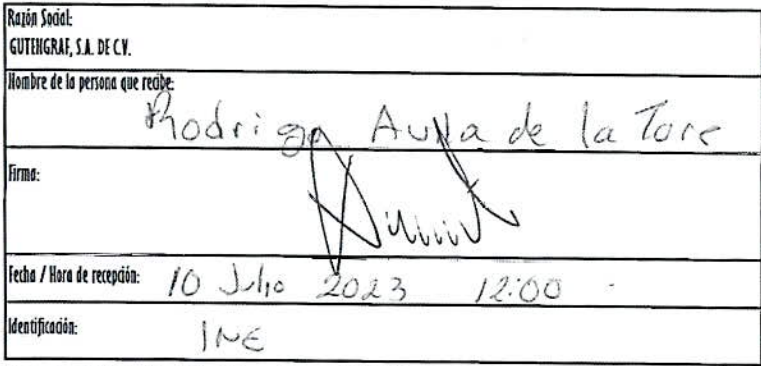 Razón Social:
GUTENGRAF, S.A. DE C.V.
Nombre de la persona que recibe:
Rodrigo de la Torre
Firma:
Fecha / Hora de recepción: 10 Julio 2023 12:00
Identificación: INE